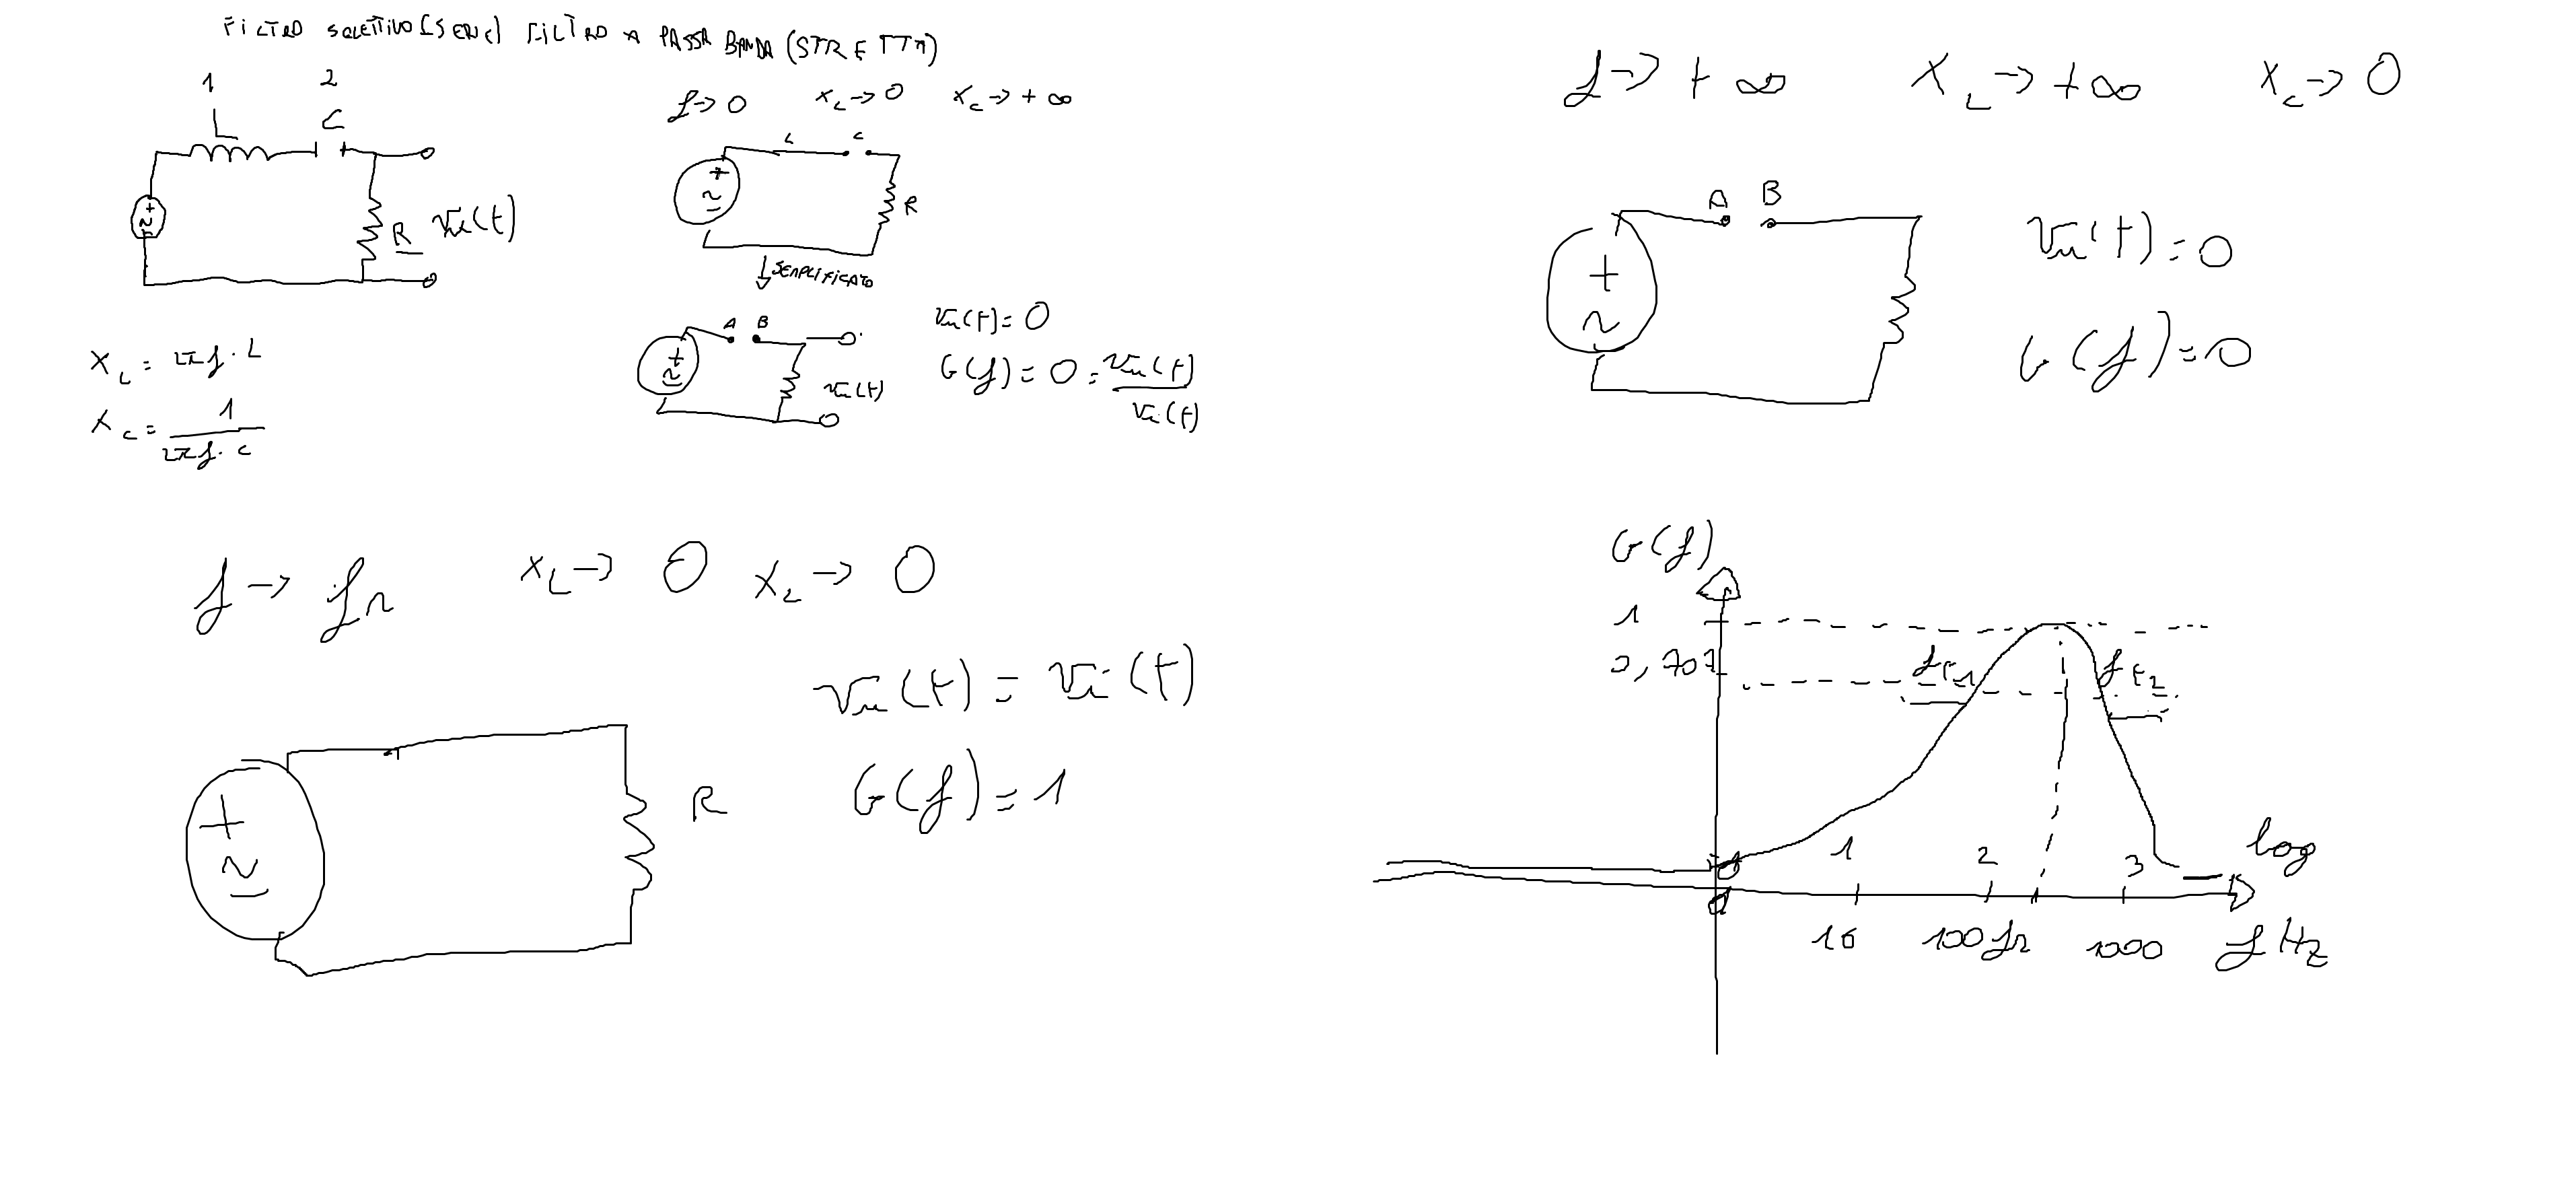 FILTRO SELETTIVO (SERIE) FILTRO A PASSA BANDA (STRETTA)
1 2
L C
R
X_L = 2πf · L
X_C = 1 / 2πf · C
f → 0 X_L → 0 X_C → + ∞
L C
+ ~ R
↓ SEMPLIFICATO
A B
+ ~
Vu(t) = 0
G(f) = 0 = Vu(t) / Vi(t)
f → + ∞ X_L → + ∞ X_C → 0
A B
+ ~
Vu(t) = 0
G(f) = 0
f → fr X_L → 0 X_L → 0
Vu(t) = Vi(t)
G(f) = 1
+ ~ R
G(f)
1
0,707
ft1 ft2
1 2 3 log
10 100 fr 1000 f Hz